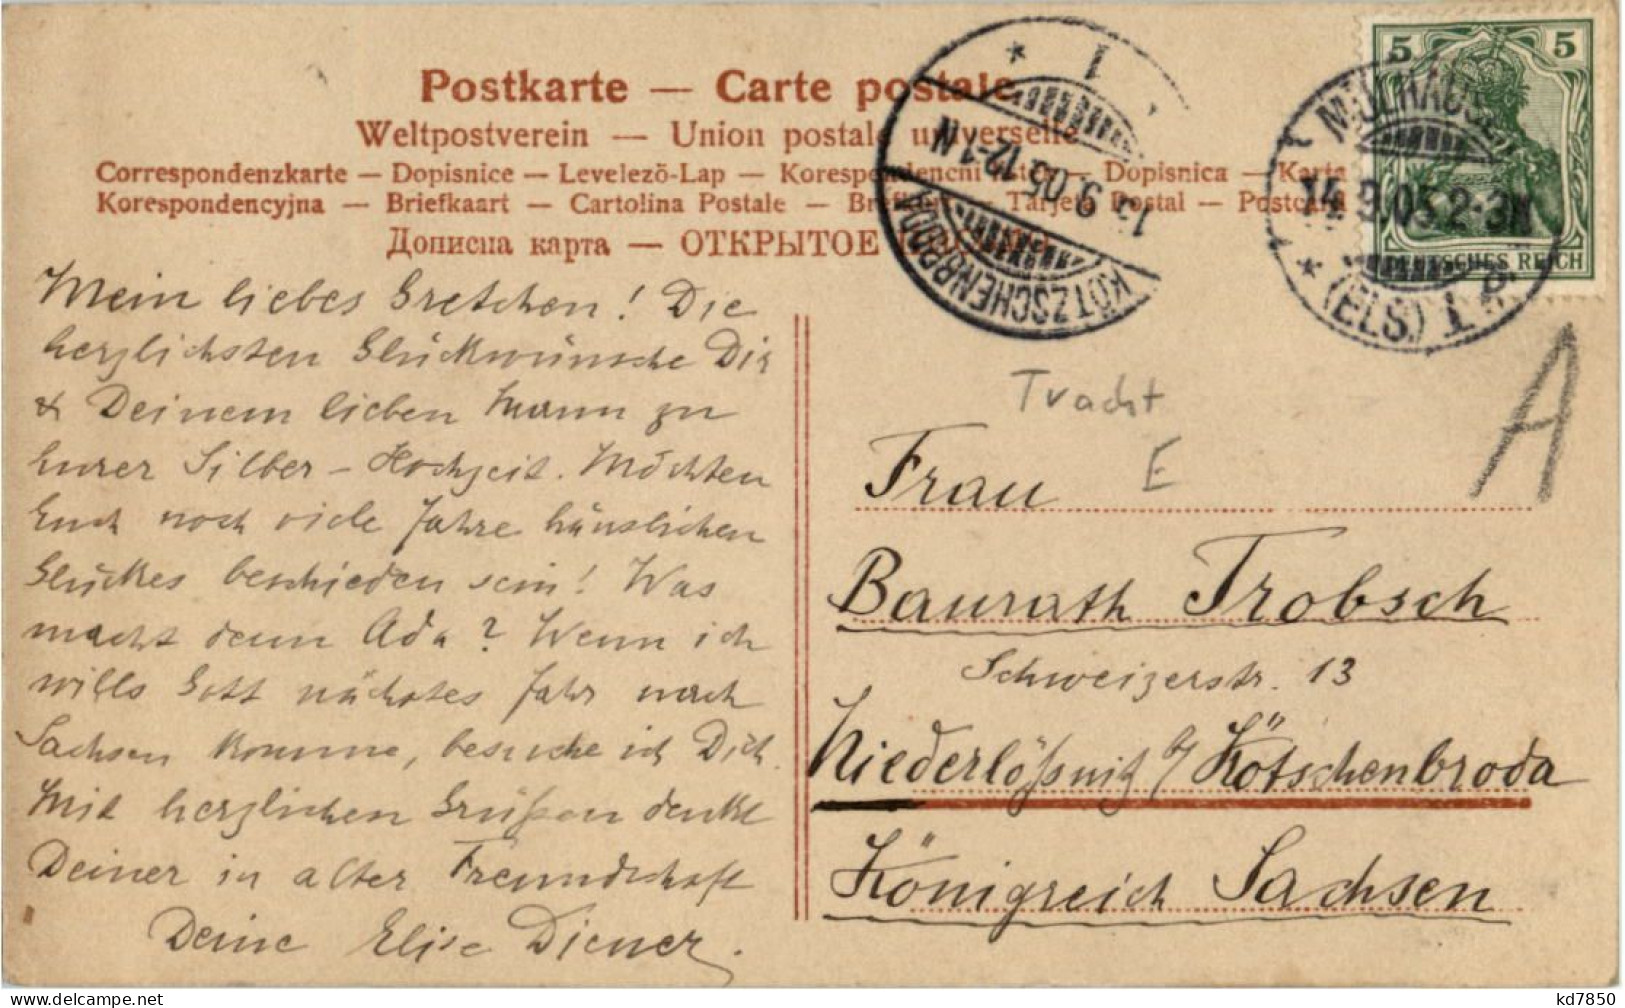 Postkarte — Carte postale
Weltpostverein — Union postale universelle
Correspondenzkarte — Dopisnice — Levelező-Lap — Dopisnica — Karta
Korespondencyjna — Briefkaart — Cartolina Postale — Tarjeta Postal — Postcard
Дописна карта — ОТКРЫТОЕ
1
15.9.05.12-1N
KÖTZSCHENBRODA
5 5
DEUTSCHES REICH
MÜLHAUSEN
14.9.05.2-3N
(ELS.) 1
Mein liebes Gretchen! Die
herzlichsten Glückwünsche Dir
& Deinem lieben Mann zu
Eurer Silber-Hochzeit. Möchten
Euch noch viele Jahre häuslichen
Glückes beschieden sein! Was
macht denn Ada? Wenn ich
wills Gott nächstes Jahr nach
Sachsen komme, besuche ich Dich.
Mit herzlichen Grüßen denkt
Deiner in alter Freundschaft
Deine Elise Diener.
Tracht
E
A
Frau
Baurath Trobsch
Schweizerstr. 13
Niederlößnitz b/ Kötschenbroda
Königreich Sachsen
kd7850